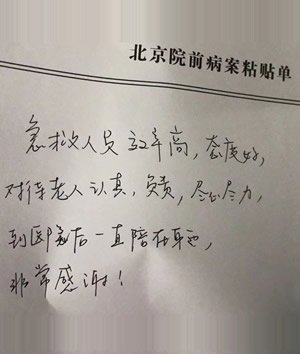 北京院前病案粘贴单
急救人员效率高，态度好，
对待老人认真，负责，尽心尽力，
到医院后一直陪在身边，
非常感谢！